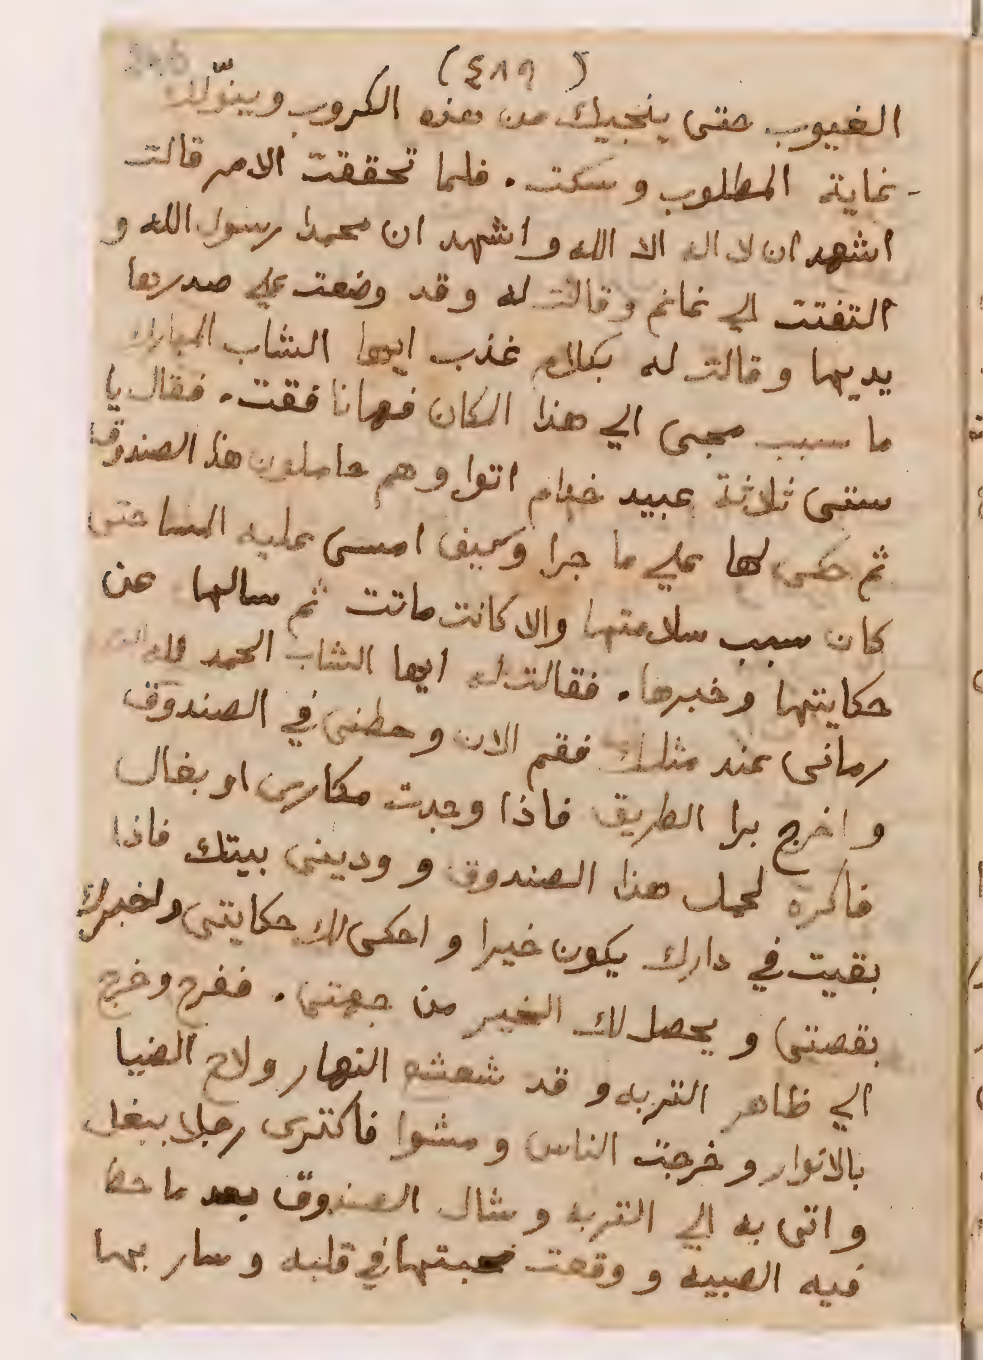 (٤٨٩)
الغيوب حتى ينجيك من هذه الكروب وينوّلك
غاية المطلوب وسكت . فلما تحققت الامر قالت
اشهد ان لا اله الا الله واشهد ان محمدا رسول الله و
التفتت الي غانم وقالت له وقد وضعت علي صدرها
يديها وقالت له بكلام عذب ايها الشاب المبارك
ما سبب مجى الي هذا المكان فها انا فقت . فقال يا
ستى ثلاثة عبيد خدام اتوا وهم حاملون هذا الصندوق
ثم حكى لها علي ما جرا وكيف امسى عليه المسا حتى
كان سبب سلامتها والا كانت ماتت ثم سالها عن
حكايتها وخبرها . فقالت له ايها الشاب الحمد لله
رمانى عند مثلك فقم الان وحطنى في الصندوق
واخرج برا الطريق فاذا وجدت مكارى او بغال
فاكره لحمل هذا الصندوق و ودينى بيتك فاذا
بقيت في دارك يكون خيرا واحكى لك حكايتى واخبرك
بقصتى ويحصل لك الخير من جهتى . ففرح وخرج
الي ظاهر التربه وقد شعشع النهار ولاح الضيا
بالانوار وخرجت الناس ومشوا فاكترى رجلا ببغل
واتى به الي التربه وشال الصندوق بعد ما حط
فيه الصبيه ووقعت محبتها في قلبه وسار بها